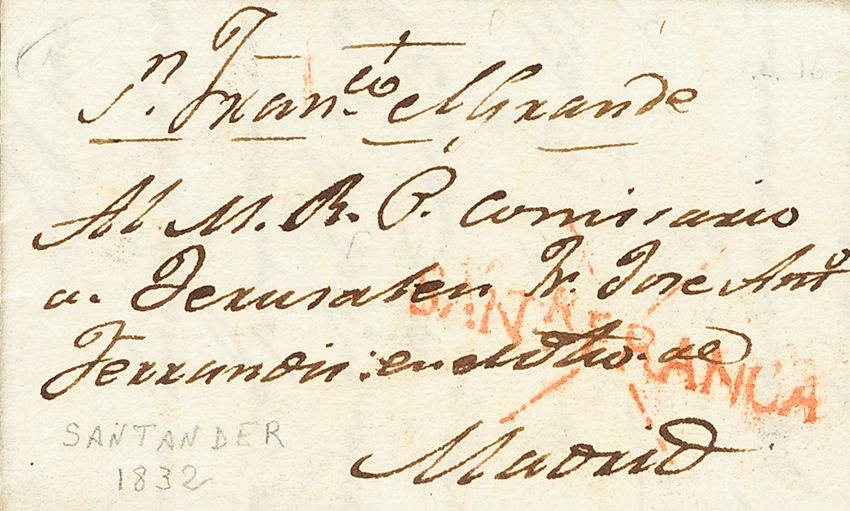 Sn. Franco. el Grande
Al M. R. P. Comisario
a. Jerusalen Fr. Jose Anto
Ferrandis. en el de
Madrid
FRANCA
SANTANDER
1832